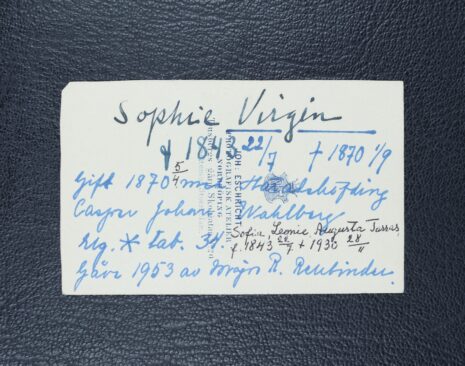 Sophie Virgin
f 1843 22/7 † 1870 1/9
Gift 1870 5/4 m. Häradshöfding
Casper Johan Wahlberg
Adl. * Tab. 34.
Sofia Lemie Augusta Tersmeden
f. 1843 22/7 † 1930 28/11
Gåva 1953 av Major R. Rehbinder.
JOH. ESCHRICHT
FOTOGRAFISK ATELIER
NORRKÖPING